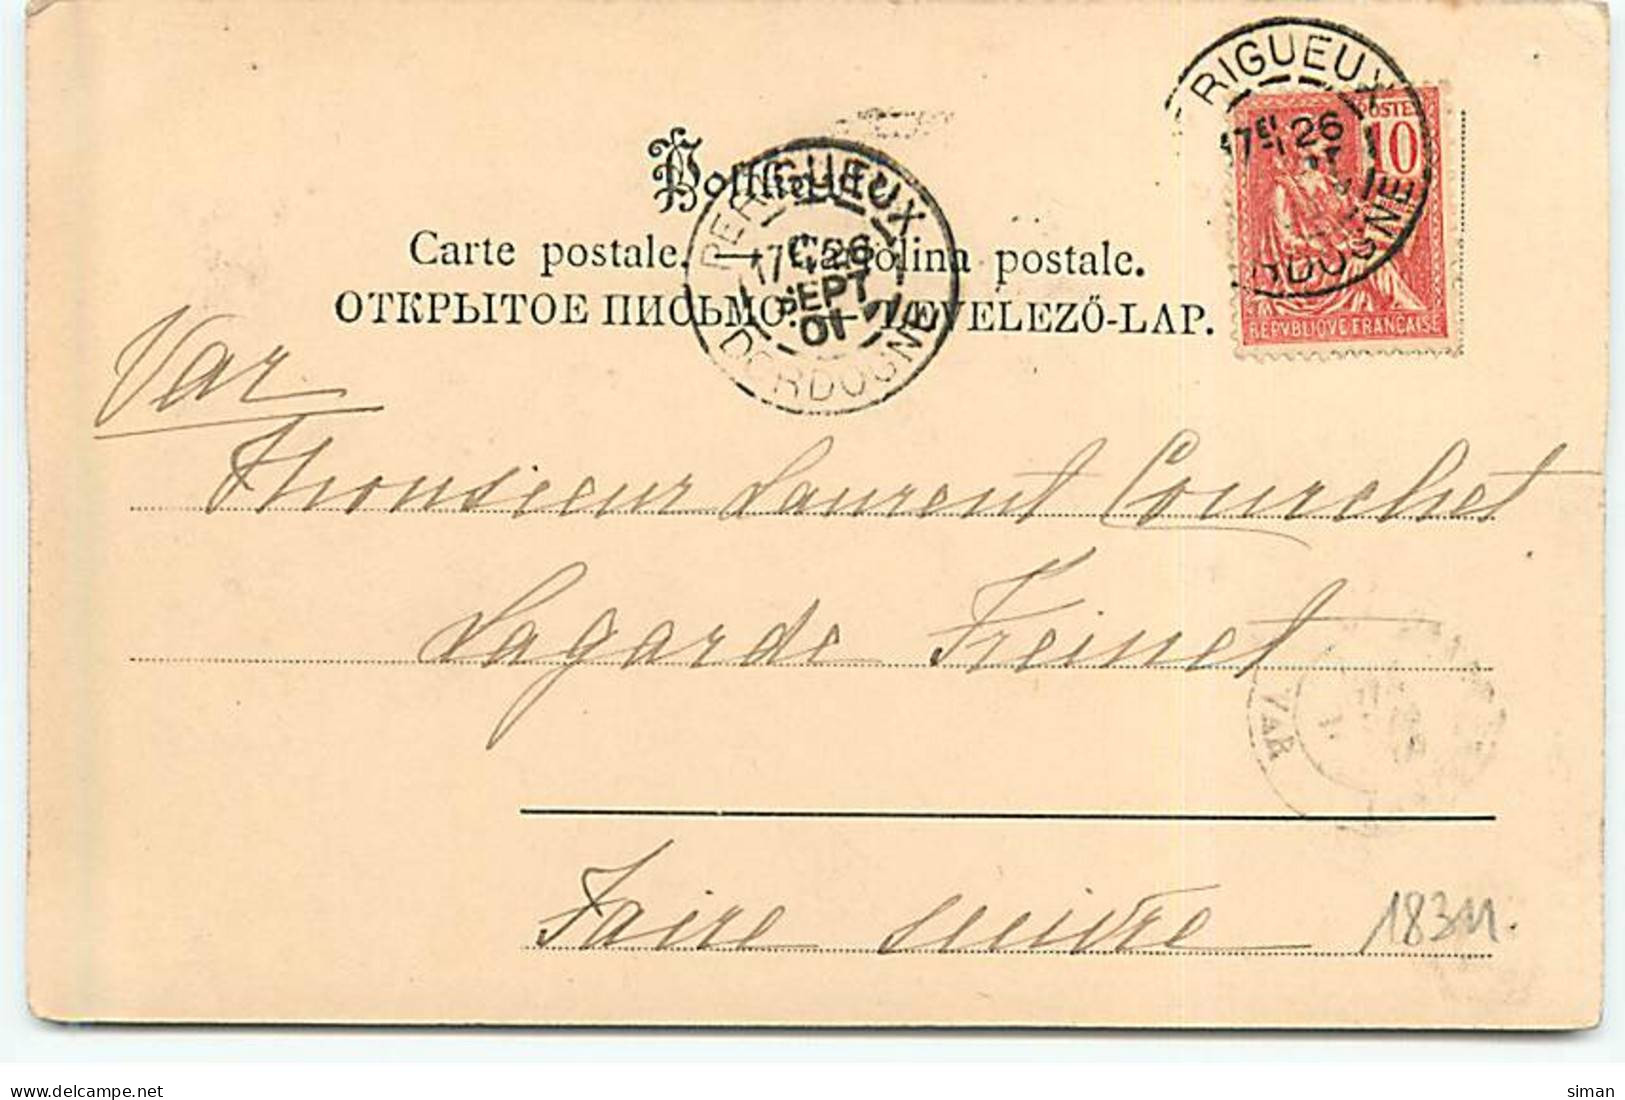 PERIGUEUX
17E 26
DORDOGNE
POSTES
10
REPVBLIQVE FRANÇAISE
Postkarte.
PERIGUEUX
17E 26
SEPT
01
DORDOGNE
Carte postale. — Cartolina postale.
ОТКРЫТОЕ ПИСЬМО. — LEVELEZŐ-LAP.
Var
Monsieur Laurent Courchet
Lagarde Freinet
VAR
Faire suivre
delcampe.net
siman